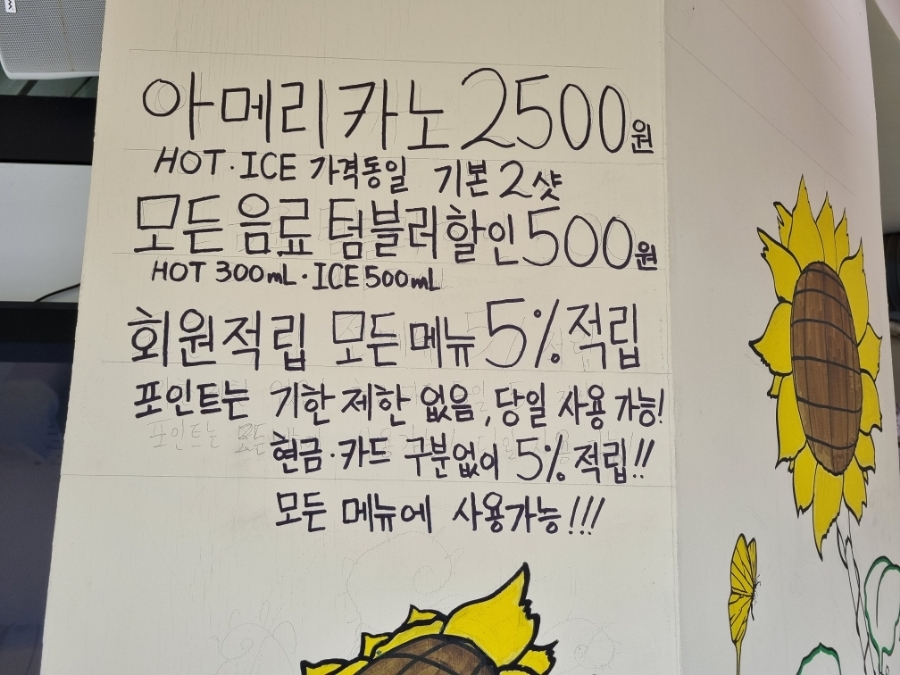 아메리카노 2500원
HOT·ICE 가격동일 기본 2샷
모든 음료 텀블러할인 500원
HOT 300mL·ICE 500mL
회원적립 모든메뉴 5% 적립
포인트는 기한 제한 없음, 당일 사용 가능!
현금·카드 구분없이 5% 적립!!
모든 메뉴에 사용가능!!!